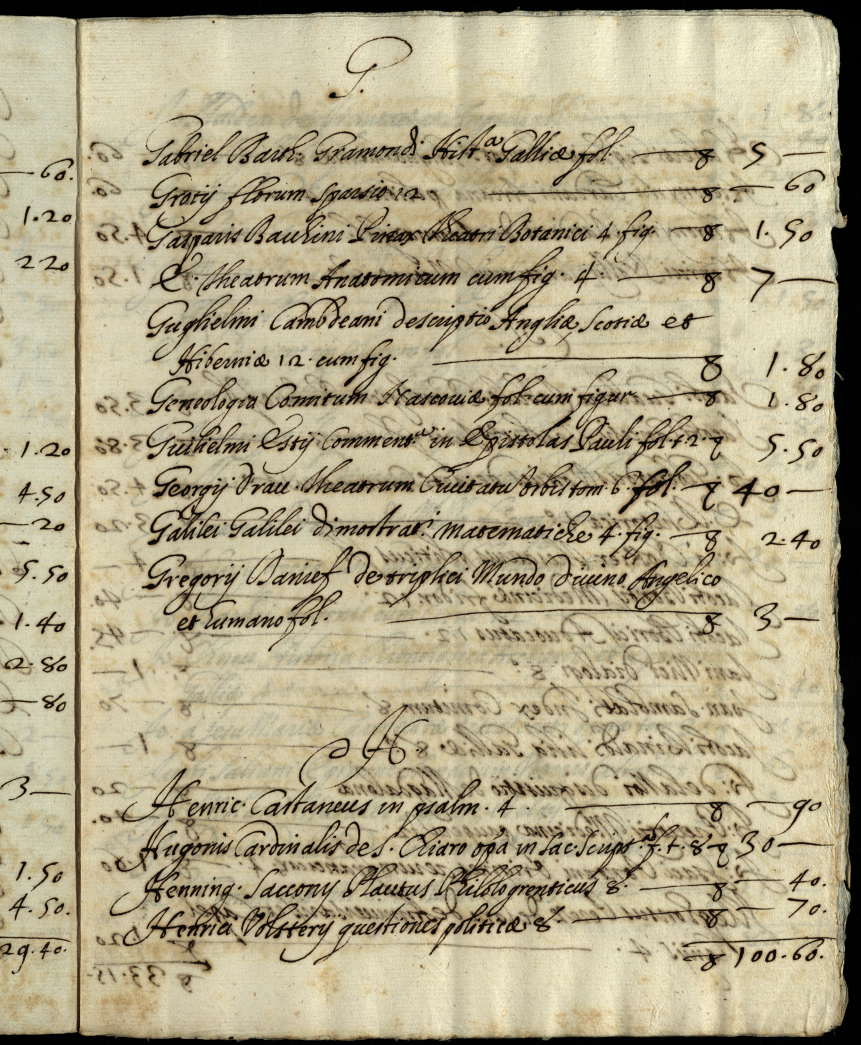 60.
1.20
2 20
1.20
4.50
20
5.50
1.40
2.80
80
3
1.50
4.50.
29.40.
G.
Gabriel Barth. Gramondi Hist.a Galliæ fol. 8 5
Grotij florum sparsio 12 8 60
Gasparis Bauhini Theatri Botanici 4. fig. 8 1.50
E. Theatrum Anatomicum cum fig. 4 8 7
Guglielmi Cambdeani descriptio Angliæ, Scotiæ et
Hiberniæ 12. cum fig. 8 1.80
Geneologia Comitum Nascoviæ fol. cum figur. 8 1.80
Guilhelmi Estij Comment. in Epistolas Pauli fol. t. 2. 8 5.50
Georgij Theatrum Civitatu Orbis tom. 6. fol. 8 40
Galilei Galilei dimostrat. matematiche 4. fig. 8 2.40
Gregorij de triplici Mundo divino Angelico
et humano fol. 8 3
H
Henric. Castaneus in psalm. 4. 8 90
Hugonis Cardinalis de S. Chiaro opa in Sac. Script. f. t. 8 8 30
Henning. Sacconij Plautus 8. 8 40.
Henrici Polsterij questiones politicæ 8 8 70.
8 100.60.